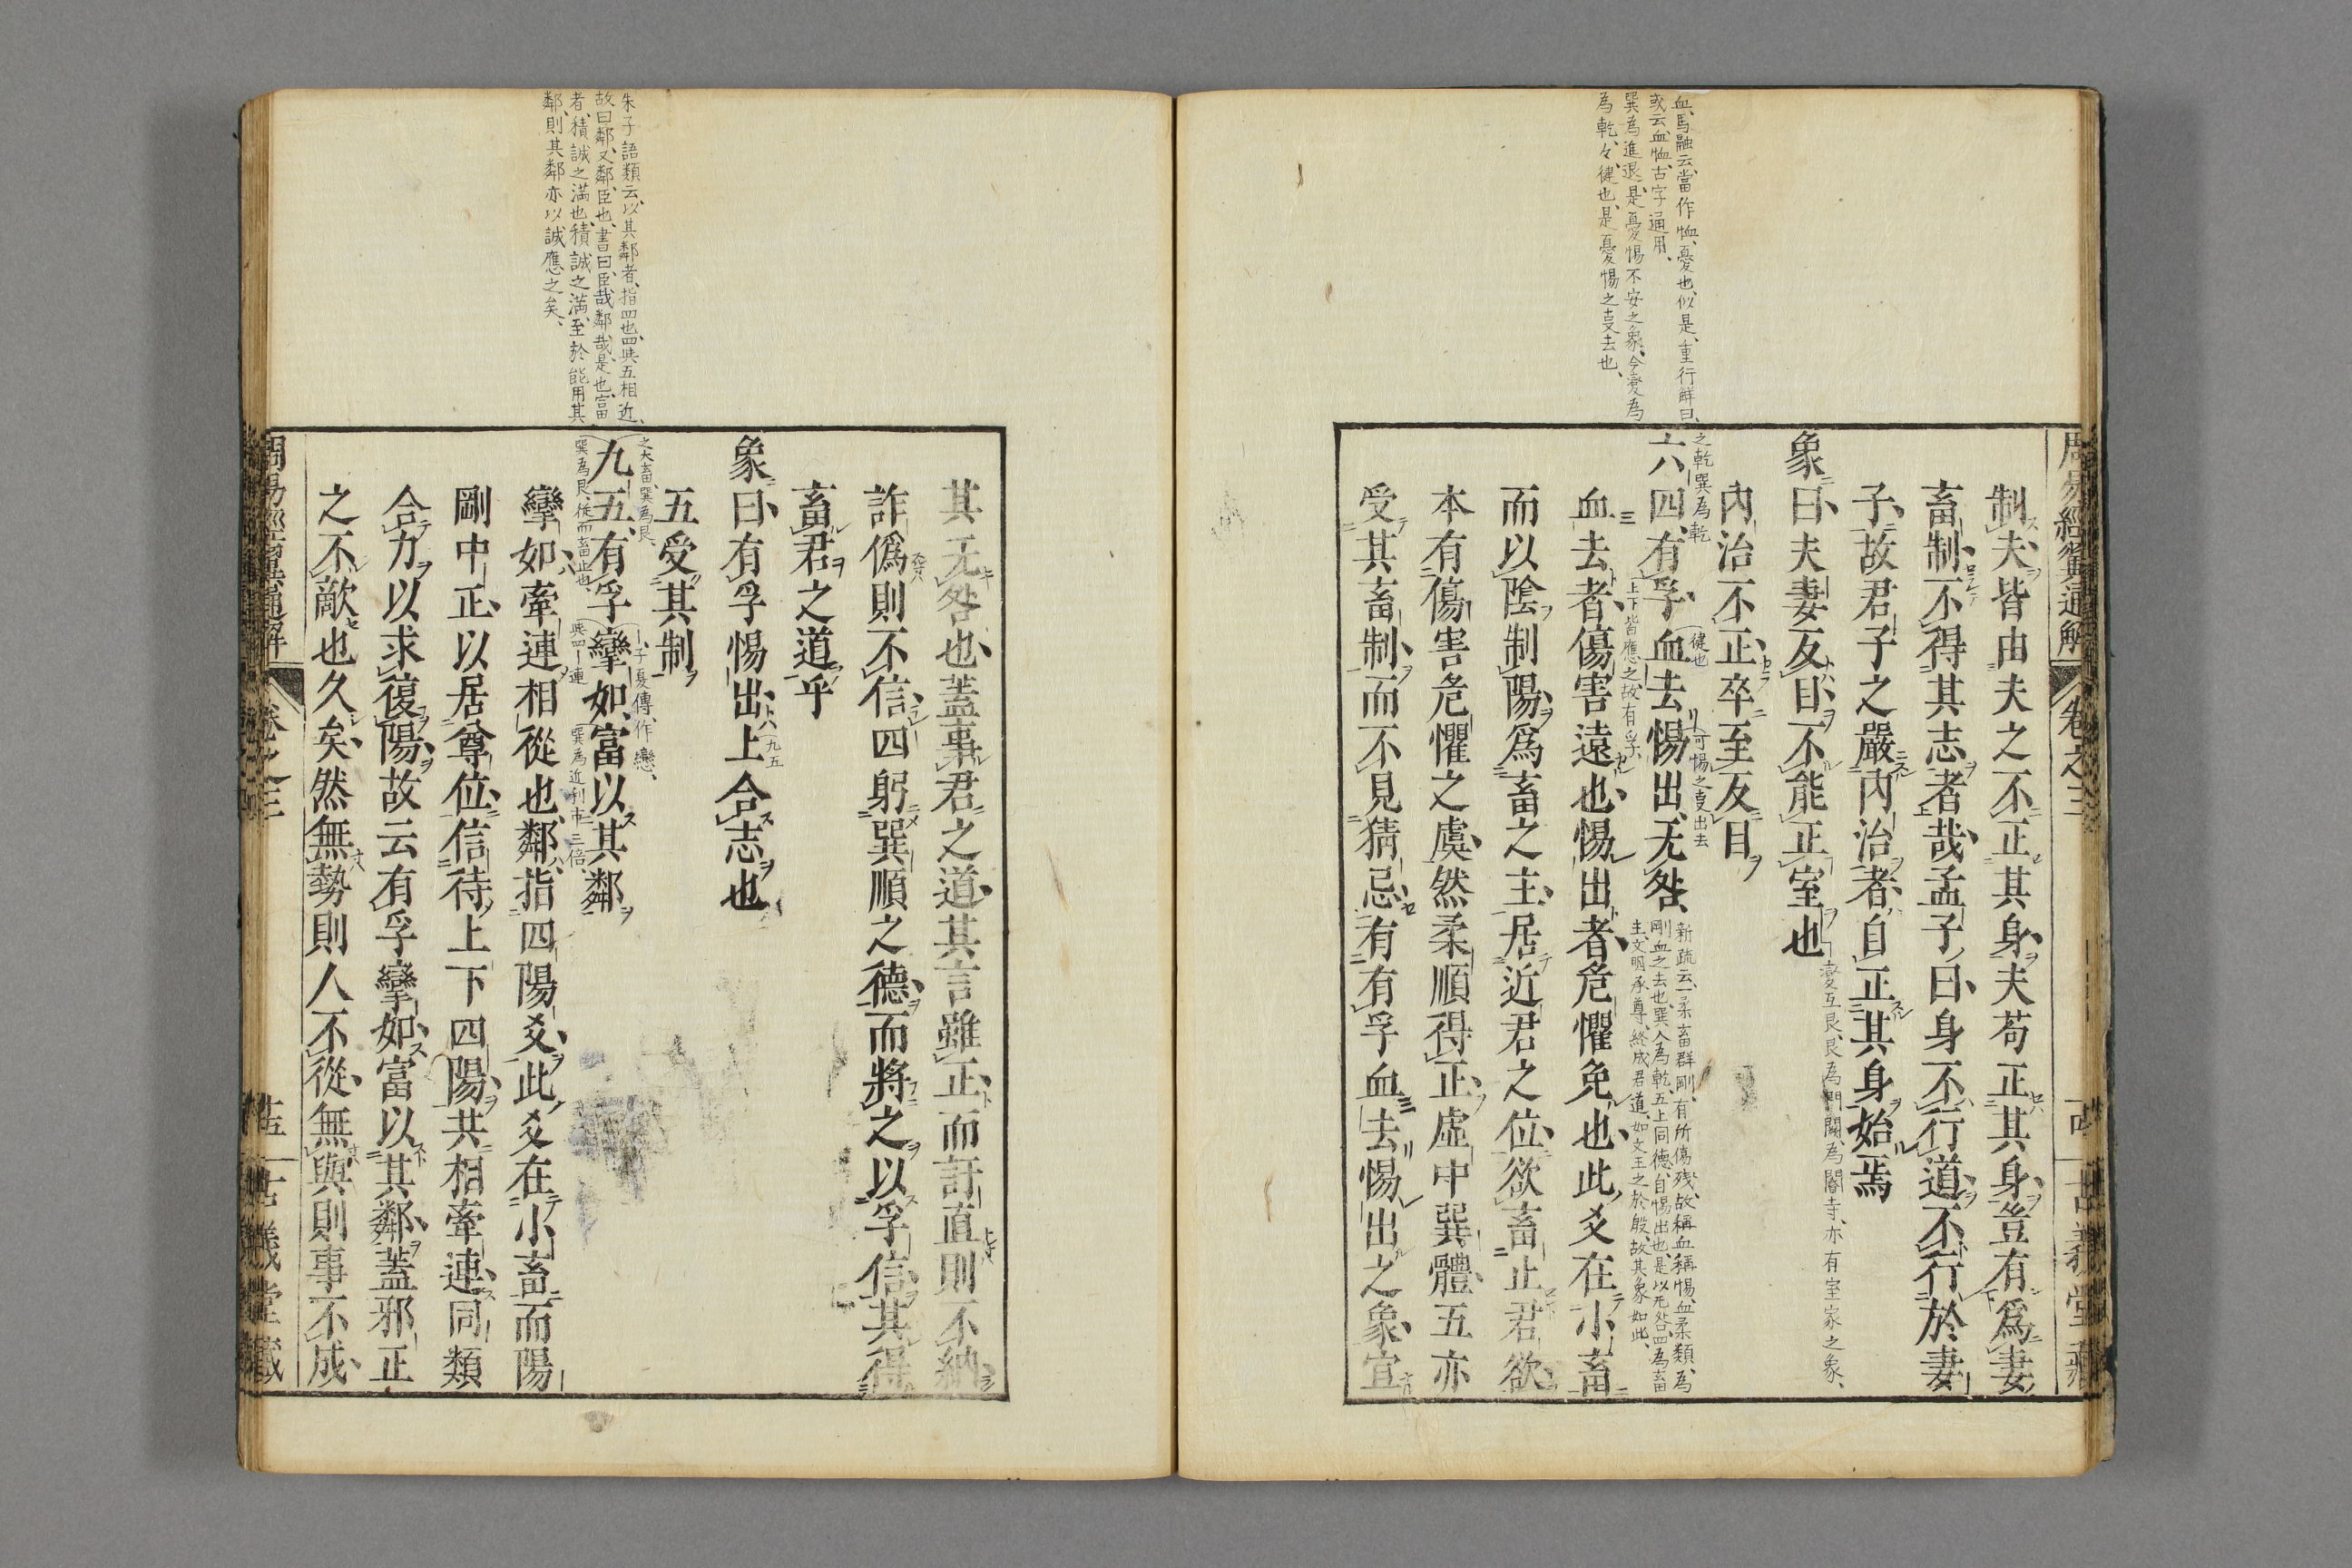 周易經翼通解 卷之三 古義堂藏
血、馬融云、當作恤、憂也、似是、重行觧曰、
或云血恤、古字通用、
巽為進退、是憂惕不安之象、今變為
為乾、々、健也、是憂惕之㕛去也、
制夫皆由夫之不正其身夫苟正其身豈有爲妻
畜制不得其志者哉孟子曰身不行道不行於妻
子故君子之嚴內治者自正其身始焉
象曰夫妻反目不能正室也
變互艮、艮為門闕、為閽寺、亦有室家之象、
內治不正卒至反目
之乾巽為乾
健也
可惕之㕛出去
六四有孚血去惕出无咎
上下皆應之、故有孚、
新疏云、一柔畜群剛、有所傷殘、故稱血稱惕、血柔類、為
剛血之去也、巽入為乾、五上同德、自惕出也、是以无咎、四為畜
主、文明承尊、終成君道、如文王之於殷、故其象如此、
血去者傷害遠也惕出者危懼免也此爻在小畜
而以陰制陽爲畜之主居近君之位欲畜止君欲
本有傷害危懼之虞然柔順得正虛中巽體五亦
受其畜制而不見猜忌有有孚血去惕出之象宜
朱子語類云、以其鄰者、指四也、四與五相近、
故曰鄰、又鄰、臣也、書曰、臣哉鄰哉、是也、富
者、積誠之滿也、積誠之滿、至於能用其
鄰、則其鄰亦以誠應之矣、
其无咎也蓋事君之道其言雖正而訐直則不納
詐僞則不信四躬巽順之德而將之以孚信其得
畜君之道乎
象曰有孚惕出上合志也
九五
五受其制
之大畜、巽為艮、
子夏傳、作戀、
九五有孚攣如富以其鄰
巽為艮、従而畜止也、
與四一連
巽為近利市三倍、
攣如牽連相從也鄰指四陽爻此爻在小畜而陽
剛中正以居尊位信待上下四陽共相牽連同類
合力以求復陽故云有孚攣如富以其鄰蓋邪正
之不敵也久矣然無勢則人不從無與則事不成
周易經翼通解 卷之三 古義堂藏